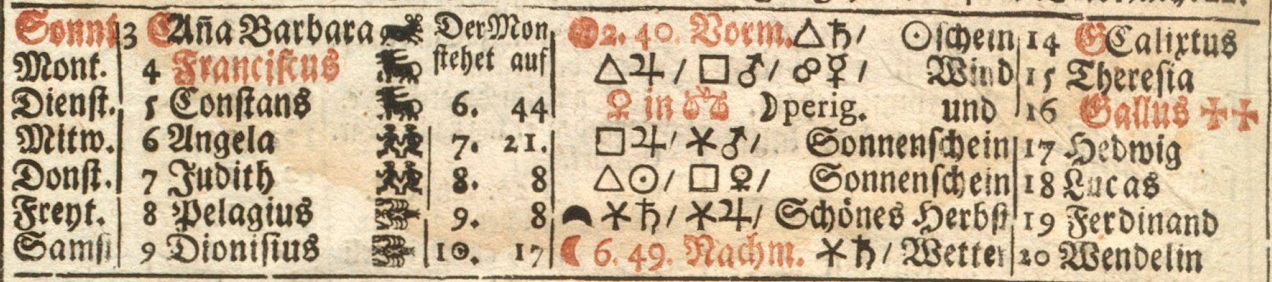 Sonnt 3 G Aña Barbara Der Mon 2. 40. Vorm. △♄/ ☉schein 14 G Calixtus
Mont. 4 Franciscus stehet auf △♃/ □♂/ ☍☿/ Wind 15 Theresia
Dienst. 5 Constans 6. 44 ♀ in ♎ ☽perig. und 16 Gallus ++
Mitw. 6 Angela 7. 21. □♃/ ⚹♂/ Sonnenschein 17 Hedwig
Donst. 7 Judith 8. 8 △☉/ □♀/ Sonnenschein 18 Lucas
Freyt. 8 Pelagius 9. 8 ⚹♄/ ⚹♃/ Schönes Herbst 19 Ferdinand
Samst 9 Dionisius 10. 17 ☾ 6. 49. Nachm. ⚹♄/ Wetter 20 Wendelin